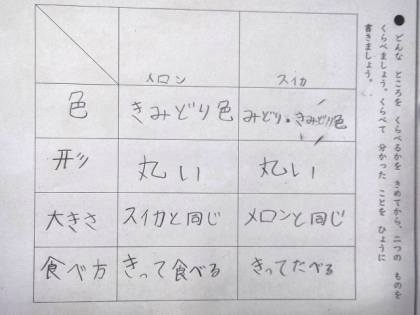 ● どんな ところを くらべるかを きめてから、二つの ものを
くらべましょう。くらべて 分かった ことを ひょうに
書きましょう。
メロン スイカ
色 きみどり色 みどり・きみどり色
形 丸い 丸い
大きさ スイカと同じ メロンと同じ
食べ方 きって食べる きってたべる